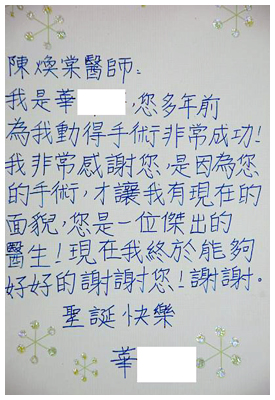 陳煥棠醫師:
我是華,您多年前
為我動得手術非常成功!
我非常感謝您,是因為您
的手術,才讓我有現在的
面貌,您是一位傑出的
醫生!現在我終於能夠
好好的謝謝您!謝謝。
聖誕快樂
華